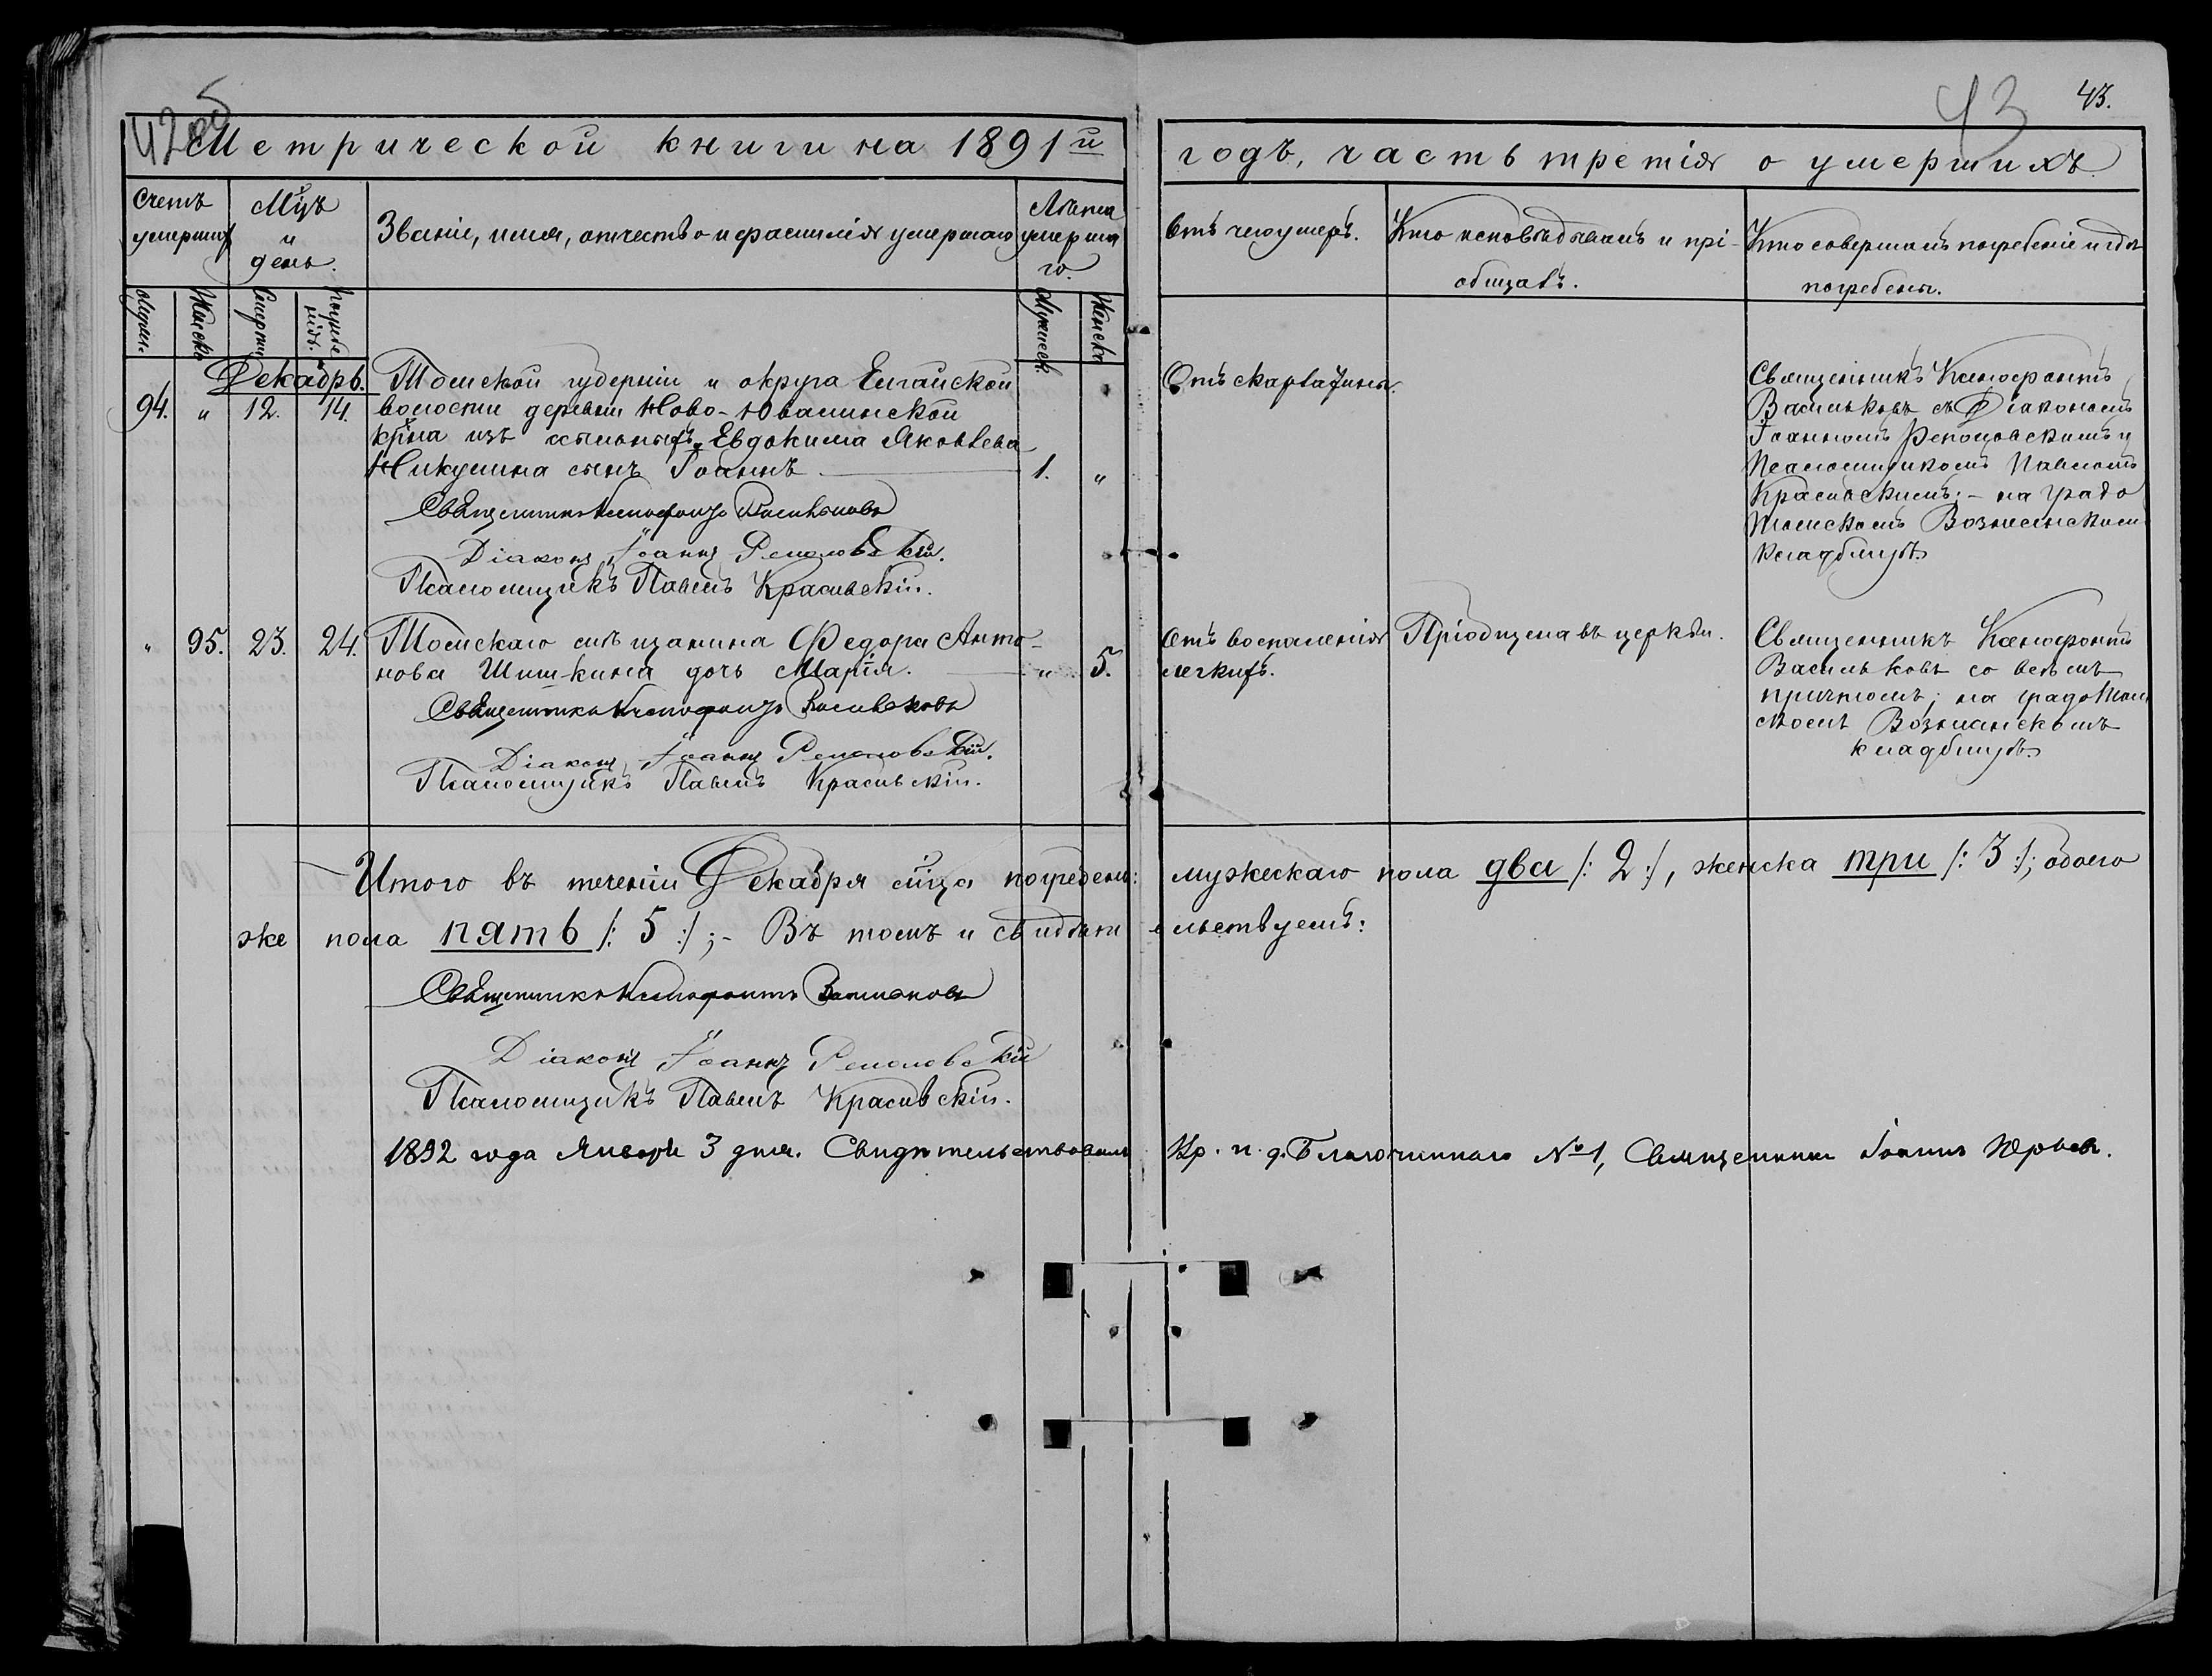 42об
43
43.
Метрической книги на 1891й годъ, часть третія о умершихъ
Счетъ умершихъ
Мц̃ъ и день.
Званіе, имя, отчество и фамилія умершаго
Лѣта умершаго.
Отъ чего умеръ.
Кто исповѣдывалъ и прі-
общавъ.
Кто совершалъ погребеніе и гдѣ
погребены.
Мужеск.
Женска
Смерти
Погребенія.
Мужеск.
Женска
Декабрь.
94. " 12. 14.
Томской губерніи и округа Елгайской
волости деревни Ново-Ювалинской
кр̃на изъ ссыльныхъ Евдокима Яковлева
Никулина сынъ Іоаннъ 1. "
Священникъ Ксенофонтъ Васильковъ
Діаконъ Іоаннъ Реполовскій.
Псаломщикъ Павелъ Красивскій.
Отъ скарлатины.
Священникъ Ксенофонтъ
Васильковъ съ Діакономъ
Іоанномъ Реполовскимъ и
Псаломщикомъ Павломъ
Красивскимъ; - на градо
Томскомъ Вознесенском
кладбищѣ
" 95. 23. 24.
Томскаго мѣщанина Федора Анто-
нова Шишкина дочь Марія. " 5.
Священникъ Ксенофонтъ Васильковъ
Діаконъ Іоаннъ Реполовскій.
Псаломщикъ Павелъ Красивскій.
Отъ воспаленія
легкихъ.
Пріобщена въ церкви.
Священникъ Ксенофонтъ
Васильковъ со всѣмъ
причтомъ; на градо Том
скомъ Вознесенскомъ
кладбищѣ
Итого въ теченіи Декабря мц̃а погребены: мужескаго пола два /: 2 :/, женска три /: 3 :/; обоего
же пола пять /: 5 :/; - Въ томъ и свидѣтельствуемъ:
Священникъ Ксенофонтъ Васильковъ
Діаконъ Іоаннъ Реполовскій
Псаломщикъ Павелъ Красивскій.
1892 года Января 3 дня. Свидѣтельствовалъ Кр. и. д. Благочиннаго № 1, Священникъ Іоаннъ Юрьев.